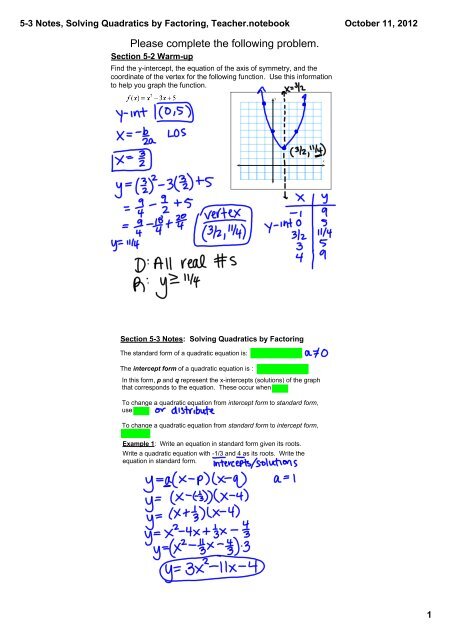 5-3 Notes, Solving Quadratics by Factoring, Teacher.notebook
October 11, 2012
Please complete the following problem.
Section 5-2 Warm-up
Find the y-intercept, the equation of the axis of symmetry, and the
coordinate of the vertex for the following function. Use this information
to help you graph the function.
f(x) = x² − 3x + 5
x=3/2
y-int (0,5)
x = -b/2a LOS
x = 3/2
(3/2, 11/4)
y = (3/2)² - 3(3/2) + 5
= 9/4 - 9/2 + 5
= 9/4 - 18/4 + 20/4
y = 11/4
vertex
(3/2, 11/4)
x | y
-1 9
y-int 0 5
3/2 11/4
3 5
4 9
D: All real #s
R: y ≥ 11/4
Section 5-3 Notes: Solving Quadratics by Factoring
The standard form of a quadratic equation is: a≠0
The intercept form of a quadratic equation is :
In this form, p and q represent the x-intercepts (solutions) of the graph
that corresponds to the equation. These occur when
To change a quadratic equation from intercept form to standard form,
use or distribute
To change a quadratic equation from standard form to intercept form,
Example 1: Write an equation in standard form given its roots.
Write a quadratic equation with -1/3 and 4 as its roots. Write the
equation in standard form. intercepts/solutions
y = a(x-p)(x-q) a = 1
y = (x-(-1/3))(x-4)
y = (x+1/3)(x-4)
y = x² - 4x + 1/3x - 4/3
y = (x² - 11/3x - 4/3)·3
y = 3x² - 11x - 4
1